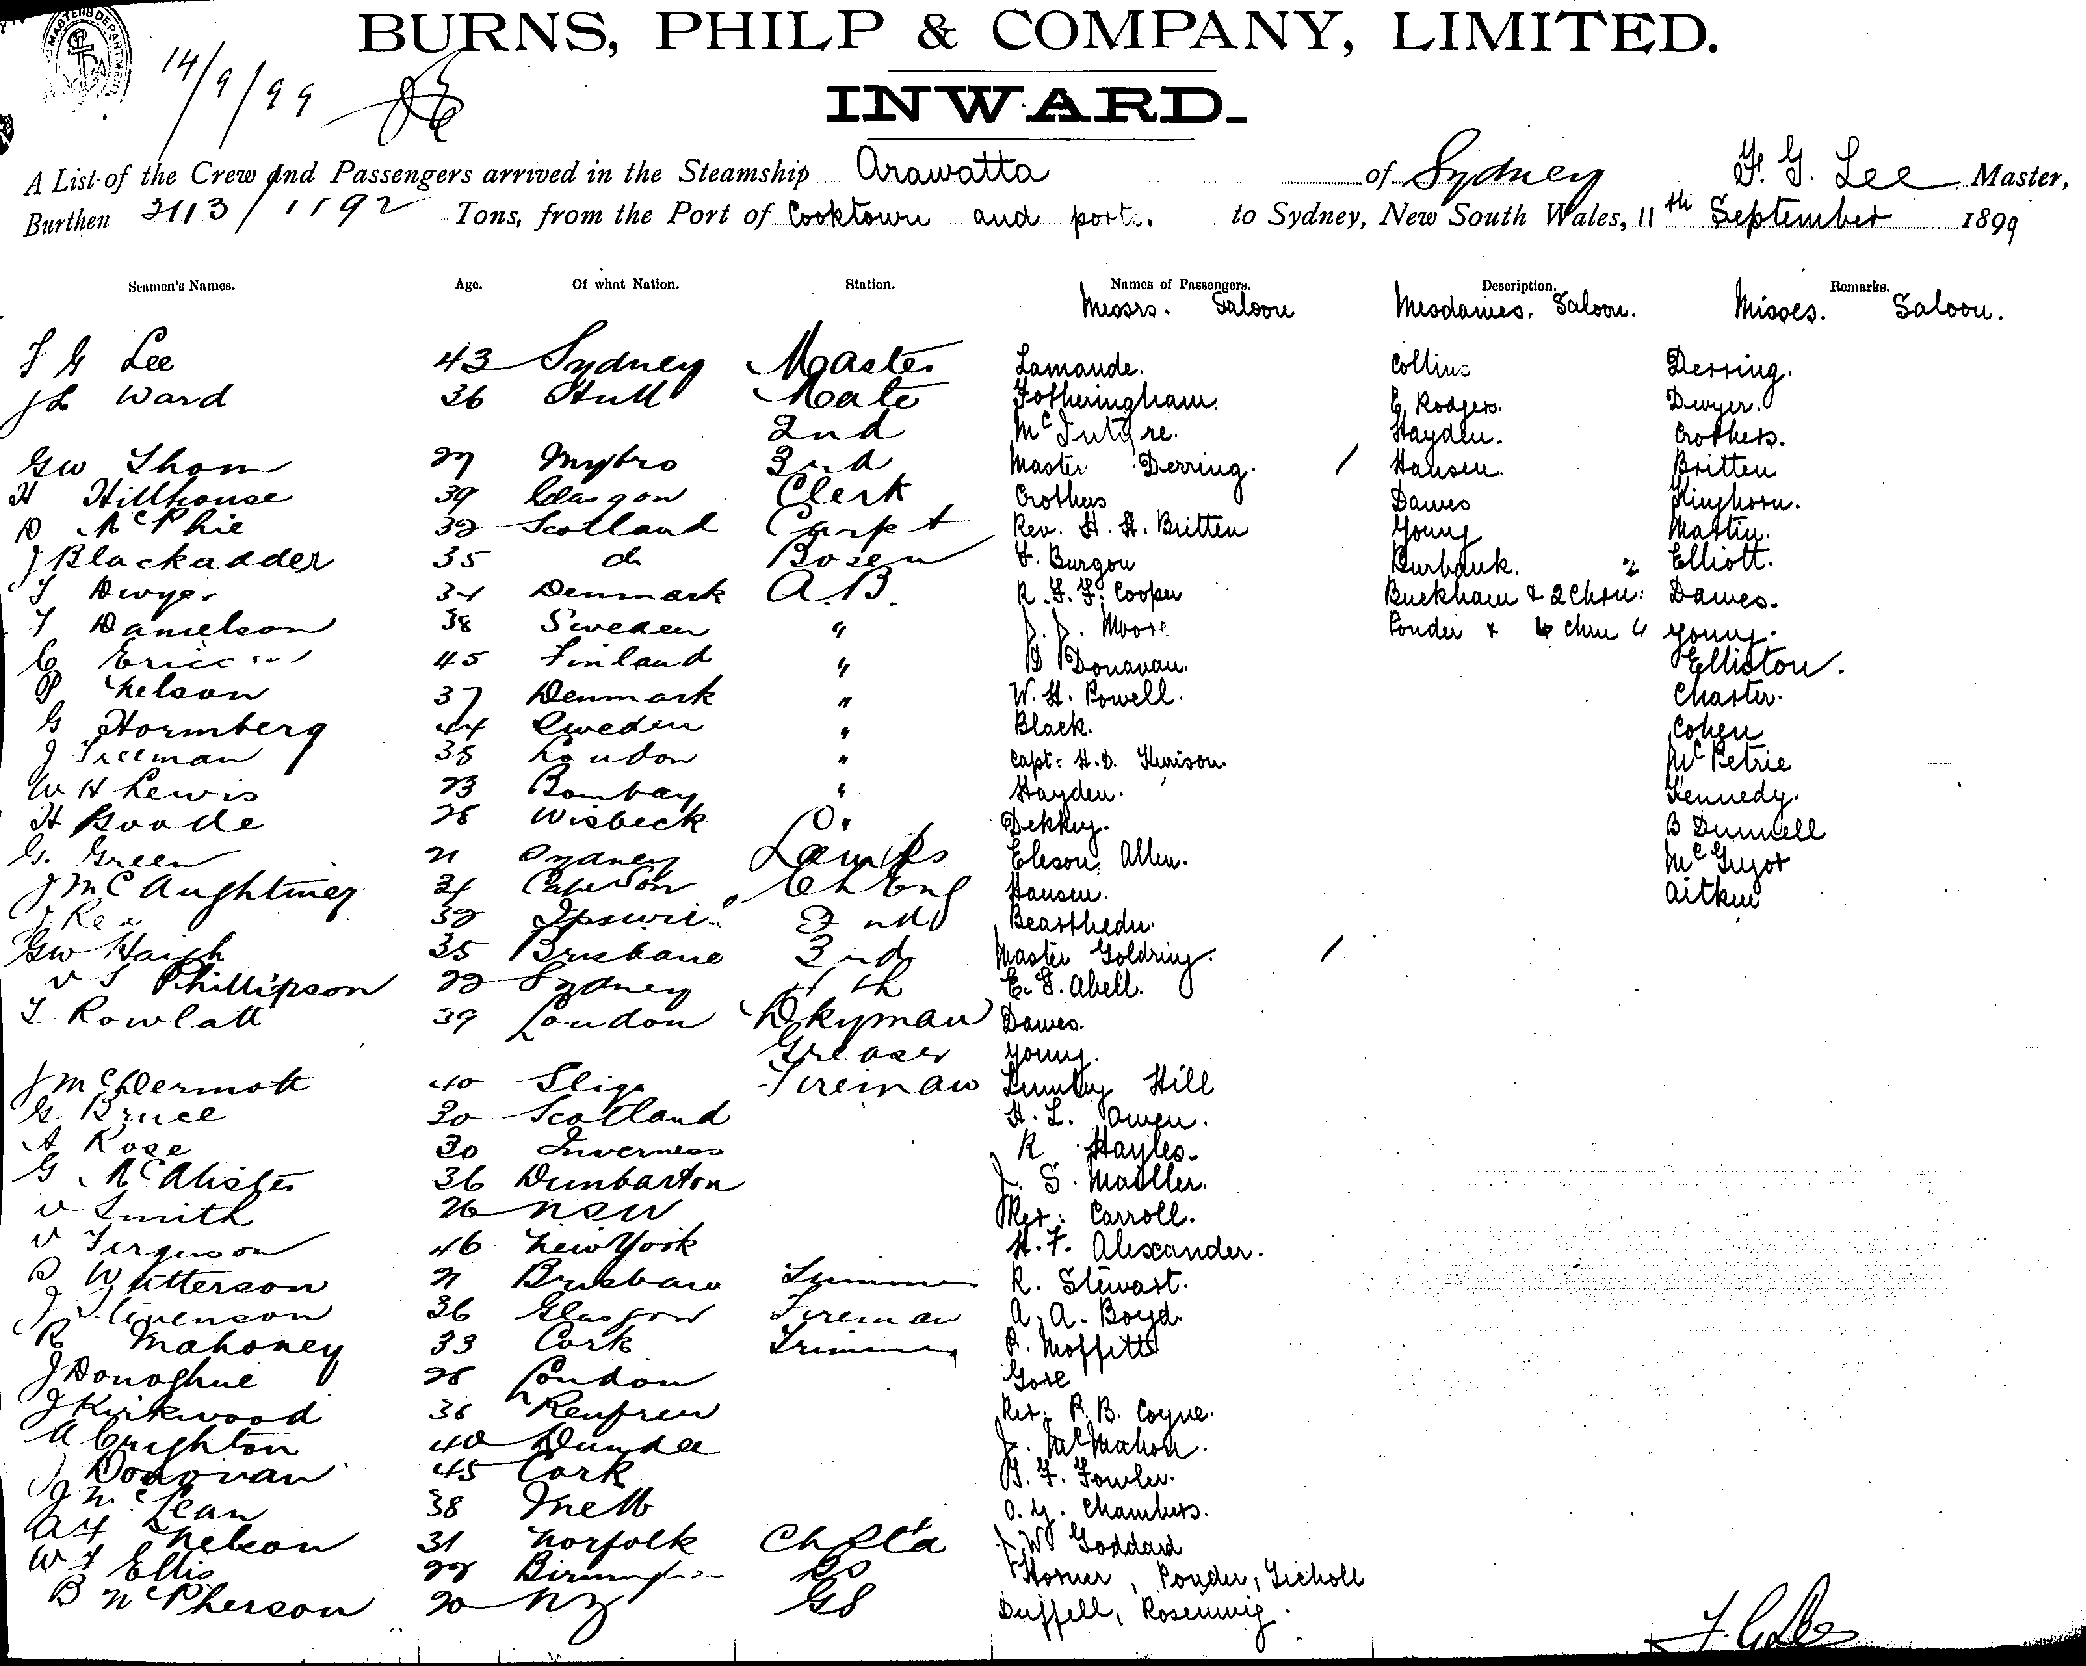 14/9/99
BURNS, PHILP & COMPANY, LIMITED.
INWARD.
A List of the Crew and Passengers arrived in the Steamship Arawatta of Sydney F. G. Lee Master,
Burthen 2113/1192 Tons, from the Port of Cooktown and ports. to Sydney, New South Wales, 11th September 1899
Seamen's Names. Age. Of what Nation. Station. Names of Passengers. Description. Remarks.
Messrs. Saloon Mesdames. Saloon. Misses. Saloon.
F G Lee 43 Sydney Master Lamande. Collins Derring.
J L Ward 36 Hull Mate Fotheringham. E. Rodgers. Dwyer.
2nd McIntyre. Hayden. Crothers.
GW Thom 27 3rd Master Derring. / Hansen. Britten
H Hillhouse 39 Glasgow Clerk Crothers Dawes Kinghorn.
D McPhie 32 Scotland Carpt Rev. H. H. Britten Young Martin.
J Blackadder 35 do Bosen Burgon Burbank. 2 Elliott.
T Dwyer 34 Denmark A.B. R. F. F. Cooper Buckham & 2 Chn: Dawes.
T Danielson 38 Sweden " J. J. Moore Ponder & 6 chn 6 Young.
C 45 Finland " D Donavan. Elliston.
P Nelson 37 Denmark " W. H. Powell. Charter.
G Stormberg 44 Sweden " Black. Cohen
J Freeman 38 London " Capt: H. D. McPetrie
W H Lewis 23 Bombay " Hayden. Kennedy.
H Goode 28 Wisbeck Dekky. B Dunnell
G. Green 21 Sydney Lamps Eleson, Allen. McGuyot
J McAughtiney 34 Ch Eng Hansen. Aitken
J Rea 32 2nd
GW Haigh 35 Brisbane 3rd Master Goldring. /
W S Phillipson 22 Sydney 4th E. S. Abell.
T Rowlatt 39 London Dkyman Dawes.
Greaser Young.
J McDermott 40 Sligo Fireman Lumley Hill
G Bruce 30 Scotland H. L. Owen.
A Rose 30 Inverness R Hayles.
G McAlister 36 Dunbarton J. S. Maoller.
W Smith 26 NSW Rev: Carroll.
W Ferguson 46 New York H. F. Alexander.
D Watterson 21 Brisbane Trimmer R. Stewart.
J Stevenson 36 Glasgow Fireman A. A. Boyd.
R Mahoney 33 Cork Trimmer P. Moffitt
J Donoghue 28 London Gore
J Kirkwood 36 Renfrew Rev: R. B. Coyne.
A Crighton 40 Dundee J. McMahon.
J Donovan 45 Cork G. F. Fowler.
J McLean 38 Melb O. Y. Chambers.
A H Nelson 31 Norfolk Ch Std J W Goddard
W T Ellis 22 Horner, Ponder, Gicholl
B McPherson 20 NZ GS Duffell, Rosenwig.